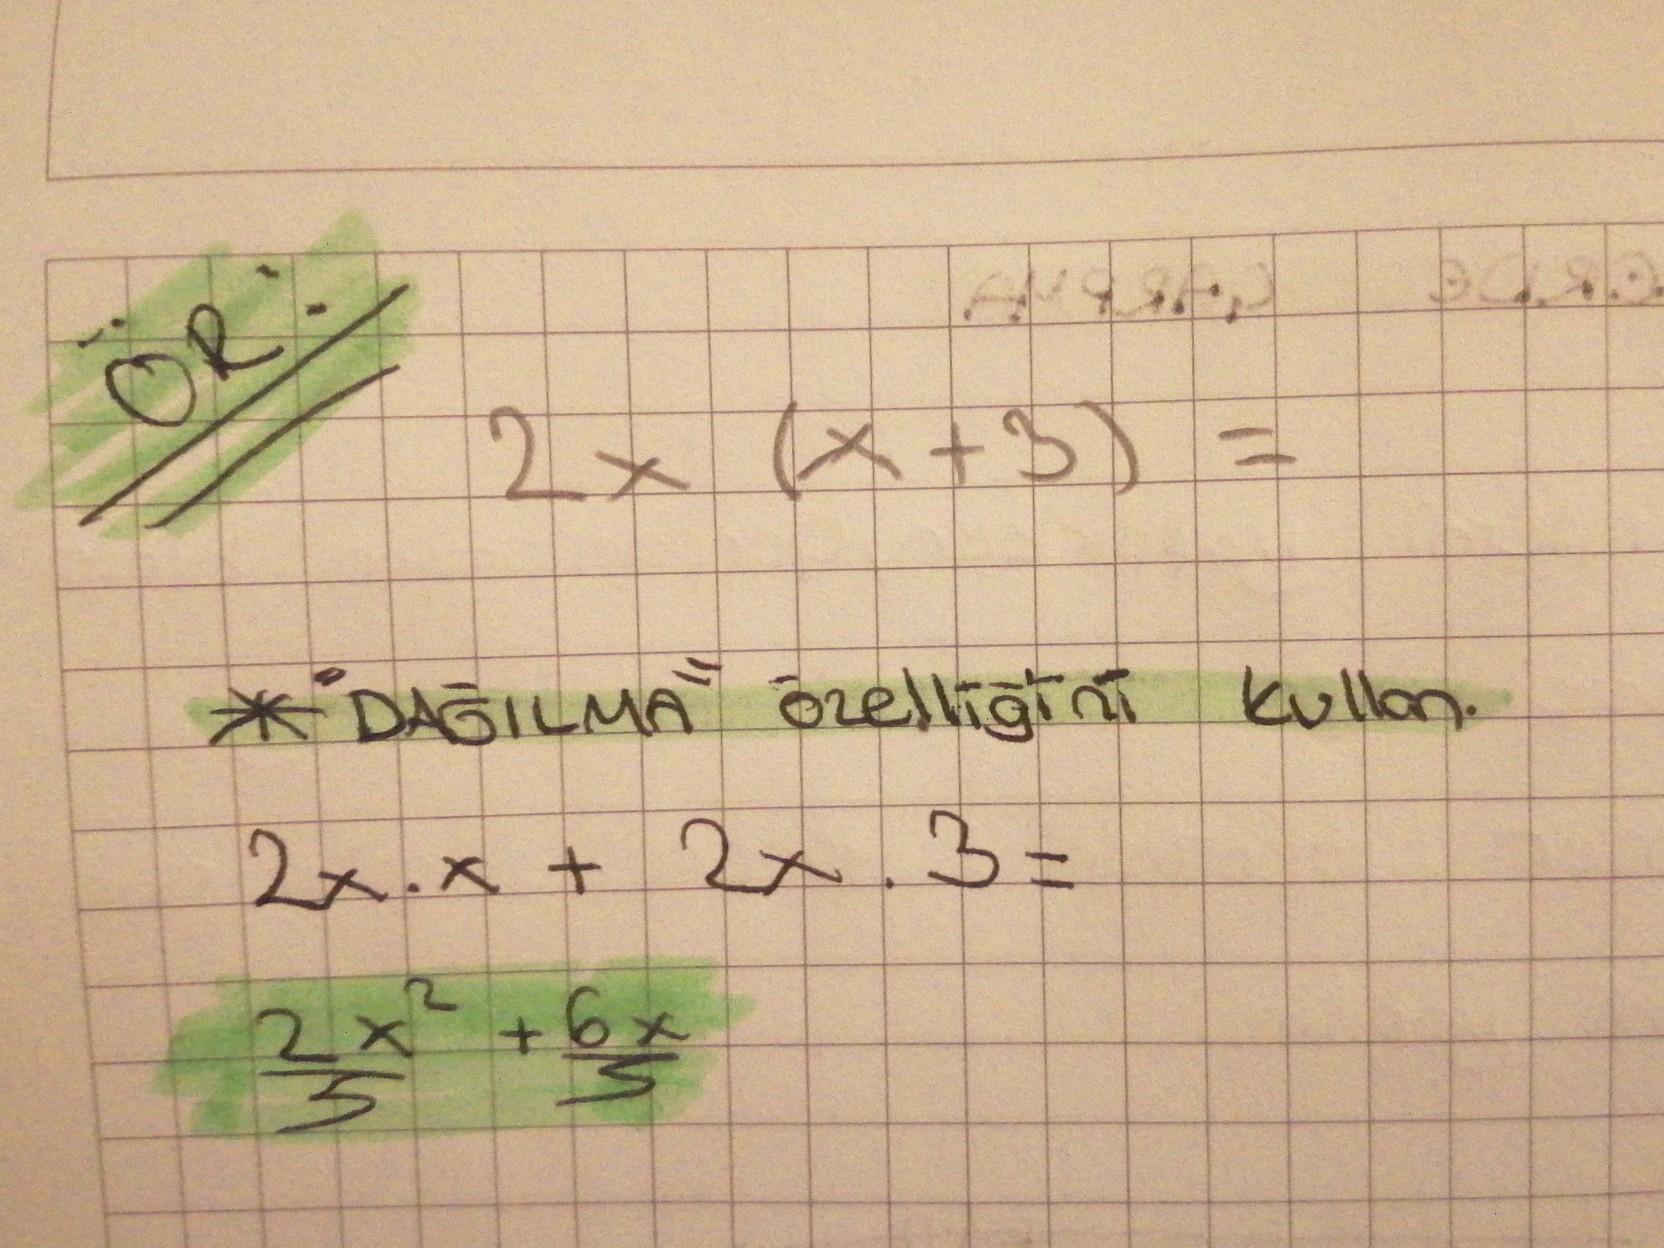 ÖR:
2x (x+3) =
* "DAĞILMA" özelliğini kullan.
2x.x + 2x.3=
2x² + 6x